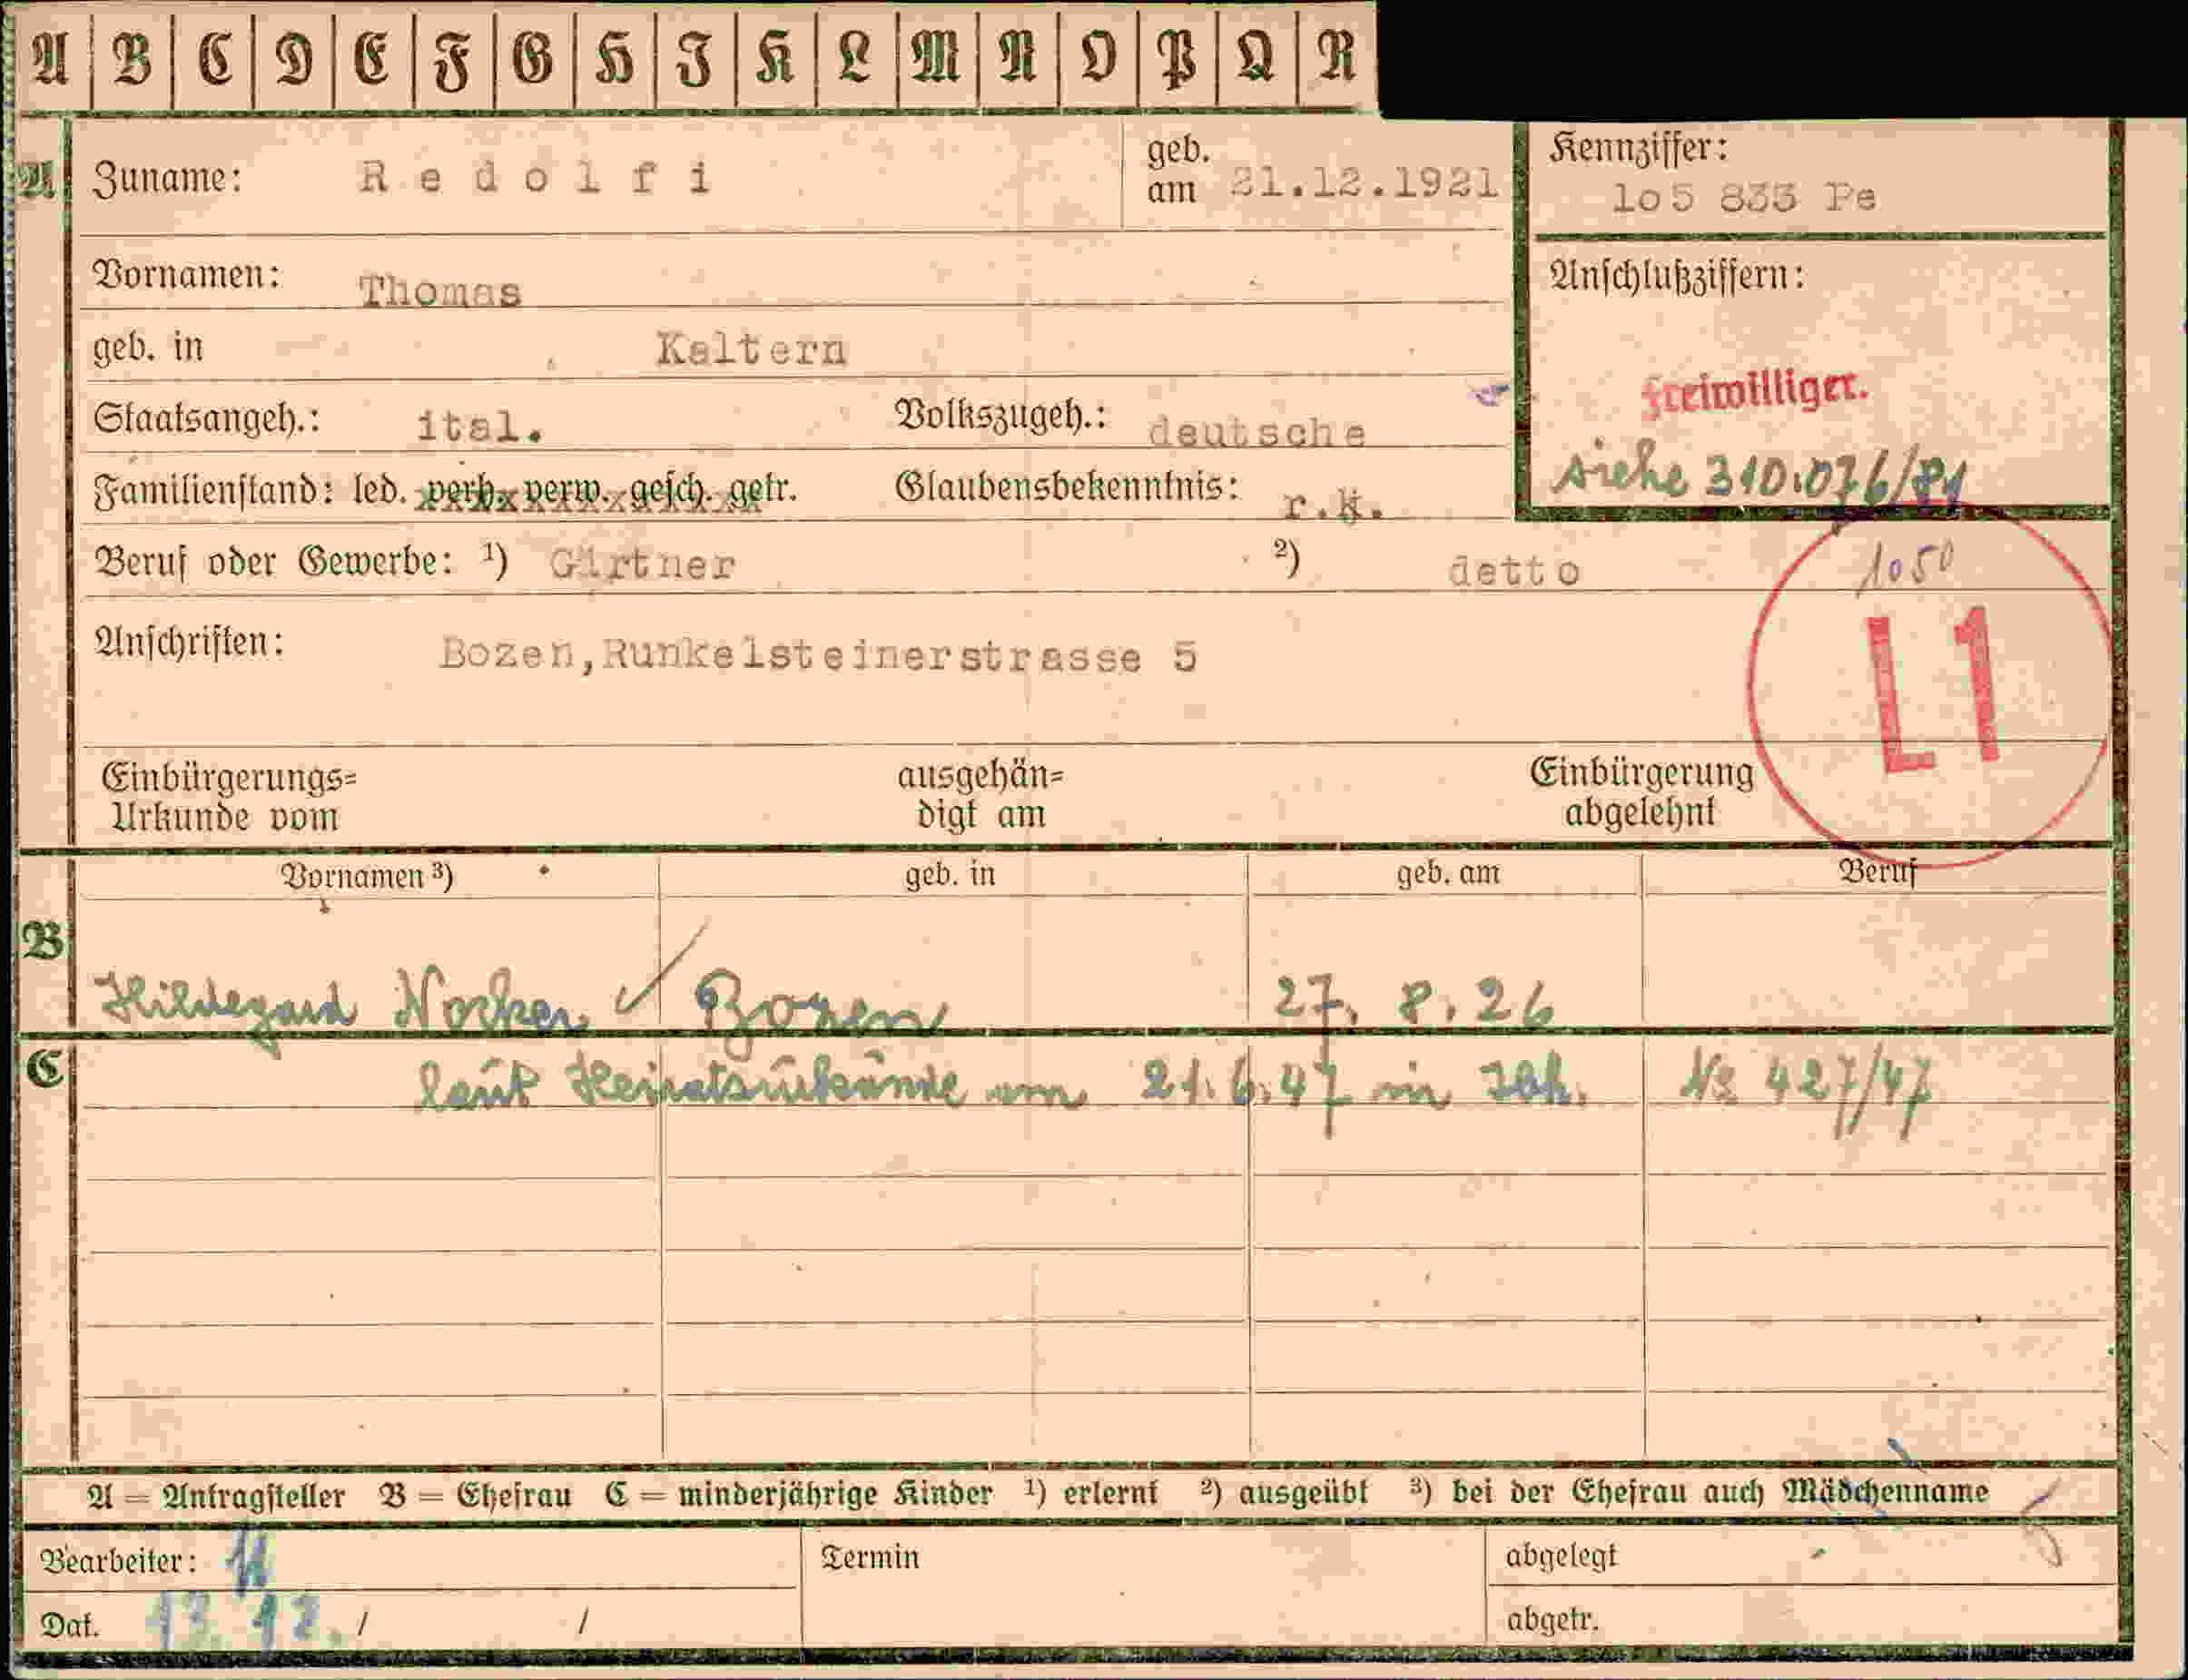 A B C D E F G H I K L M N O P Q R
A Zuname: Redolfi geb. am 21.12.1921
Kennziffer:
lo5 833 Pe
Vornamen: Thomas
Anschlußziffern:
geb. in Kaltern
Freiwilliger.
Staatsangeh.: ital. Volkszugeh.: deutsche
siehe 310.076/
Familienstand: led. verh. verw. gesch. getr. Glaubensbekenntnis: r.k.
Beruf oder Gewerbe: ¹) Gärtner ²) detto
1050
Anschriften: Bozen,Runkelsteinerstrasse 5
L1
Einbürgerungs=
Urkunde vom
ausgehän=
digt am
Einbürgerung
abgelehnt
Vornamen ³) geb. in geb. am Beruf
B Hildegard Nocker Bozen 27. 8. 26
C laut Heiratsurkunde vom 21.6.47 in Nr 427/47
A = Antragsteller B = Ehefrau C = minderjährige Kinder ¹) erlernt ²) ausgeübt ³) bei der Ehefrau auch Mädchenname
Bearbeiter: Termin abgelegt
Dat. / / abgetr.